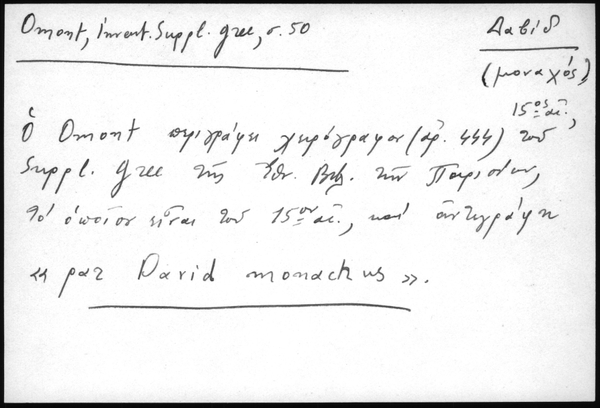 Omont, Invent. Suppl. grec, σ. 50
Δαβίδ
(μοναχός)
15ος αἰ.,
Ὁ Omont περιγράφει χειρόγραφον (ἀρ. 444) τοῦ
Suppl. Grec τῆς Ἐθν. Βιβ. τῶν Παρισίων,
τό ὁποῖον εἶναι τοῦ 15ου αἰ., καί ἀντεγράφη
« par David monachus ».